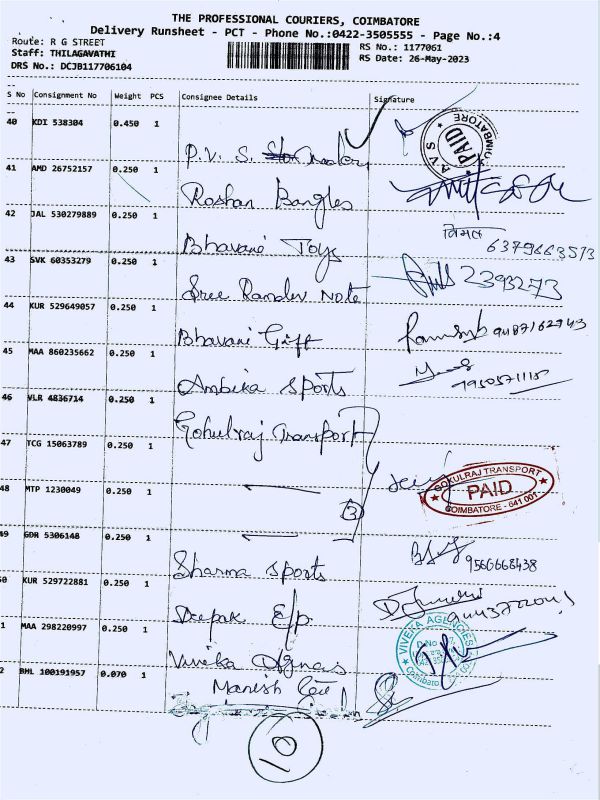 THE PROFESSIONAL COURIERS, COIMBATORE
Delivery Runsheet - PCT - Phone No.:0422-3505555 - Page No.:4
Route: R G STREET
RS No.: 1177061
Staff: THILAGAVATHI
RS Date: 26-May-2023
DRS No.: DCJB117706104
S No Consignment No Weight PCS Consignee Details Signature
40 KDI 538304 0.450 1
P.V. S.
AVS PAID COIMBATORE
41 AMD 26752157 0.250 1
Roshan Bangles
42 JAL 530279889 0.250 1
Bhavani Toys
विमल 6379663513
43 SVK 60353279 0.250 1
Sree Ramdev Note
2393273
44 KUR 529649057 0.250 1
Bhavani Gift
9487162943
45 MAA 860235662 0.250 1
Ambika Sports
46 VLR 4836714 0.250 1
Gohulraj Transport
47 TCG 15063789 0.250 1
GOKULRAJ TRANSPORT
PAID
COIMBATORE - 641 001
48 MTP 1230049 0.250 1
3
49 GDR 5306148 0.250 1
Sharma Sports
9566668438
0 KUR 529722881 0.250 1
Deepak E/p
1 MAA 298220997 0.250 1
VIVEKA AGENCIES
Viveka Agnas
2 BHL 100191957 0.070 1
Manish
10